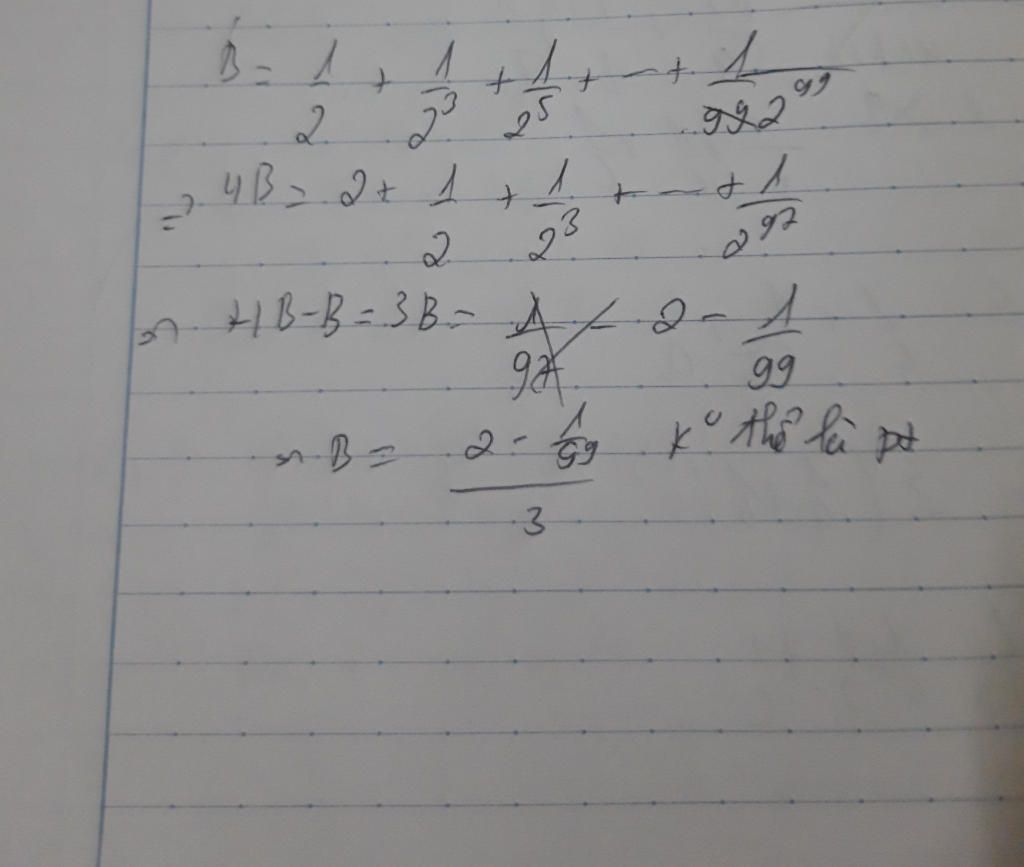 B = 1/2 + 1/2^3 + 1/2^5 + --- + 1/2^99
=> 4B = 2 + 1/2 + 1/2^3 + --- + 1/2^97
~> 4B - B = 3B = 2 - 1/99
~> B = (2 - 1/99)/3 K° thể là